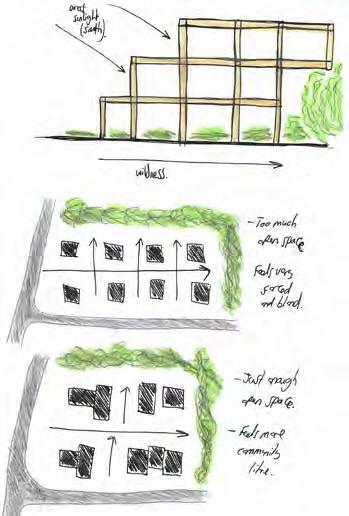 direct
sunlight
(south)
wildness.
- Too much
open space
Feels very
forced
and bland.
- Just enough
open space.
- Feels more
community
like.